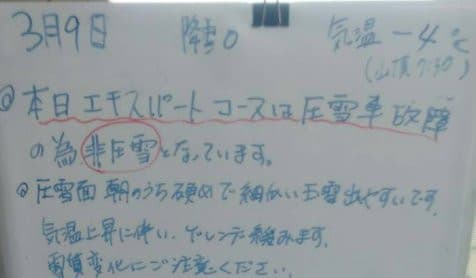 3月9日 降雪0 気温 -4℃
(山頂7:30)
◎本日エキスパートコースは圧雪車故障
の為非圧雪となっています。
◎圧雪面朝のうち硬めで細かい玉雪出やすいです。
気温上昇に伴い、ゲレンデ緩みます。
雪質変化にご注意ください。